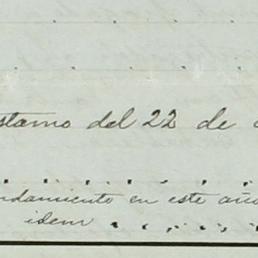 stamo del 22 de
ndamiento en este año
idem